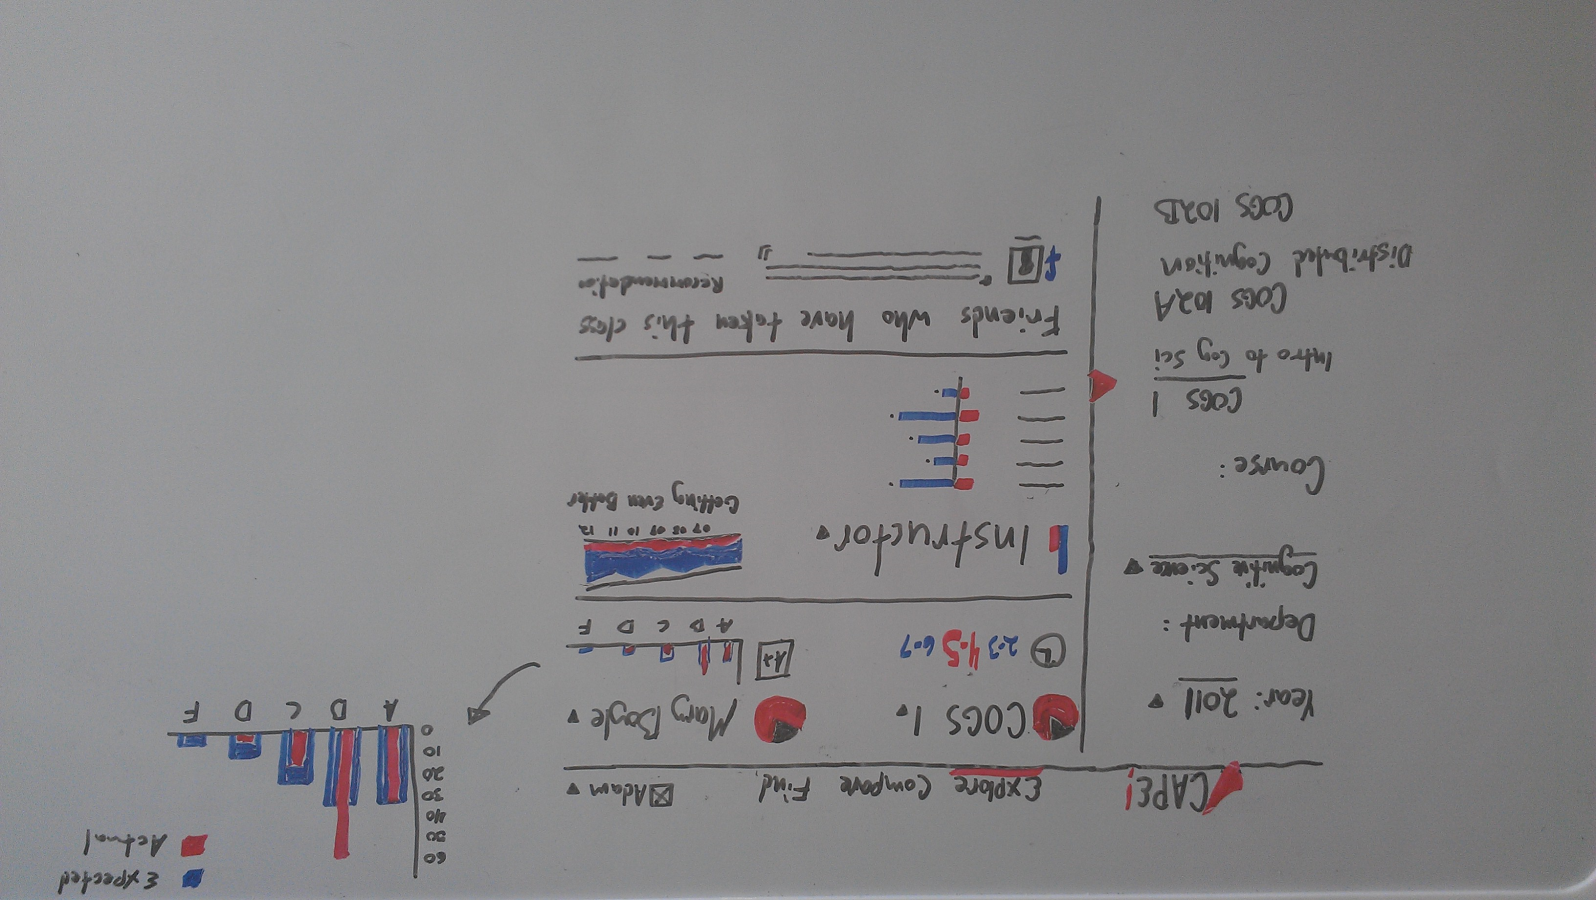 CAPE!
Explore Compare Find
Adam
Year: 2011
Department:
Cognitive Science
Course:
COGS 1
Intro to Cog Sci
COGS 102A
Distributed Cognition
COGS 102B
COGS 1
Mary Boyle
2-3 4-5 6-7
A+
A D C D F
Instructor
07 08 09 10 11 12
Getting Even Better
Friends who have taken this class
f
Recommendation
Expected
Actual
60
50
40
30
20
10
0
A D C D F